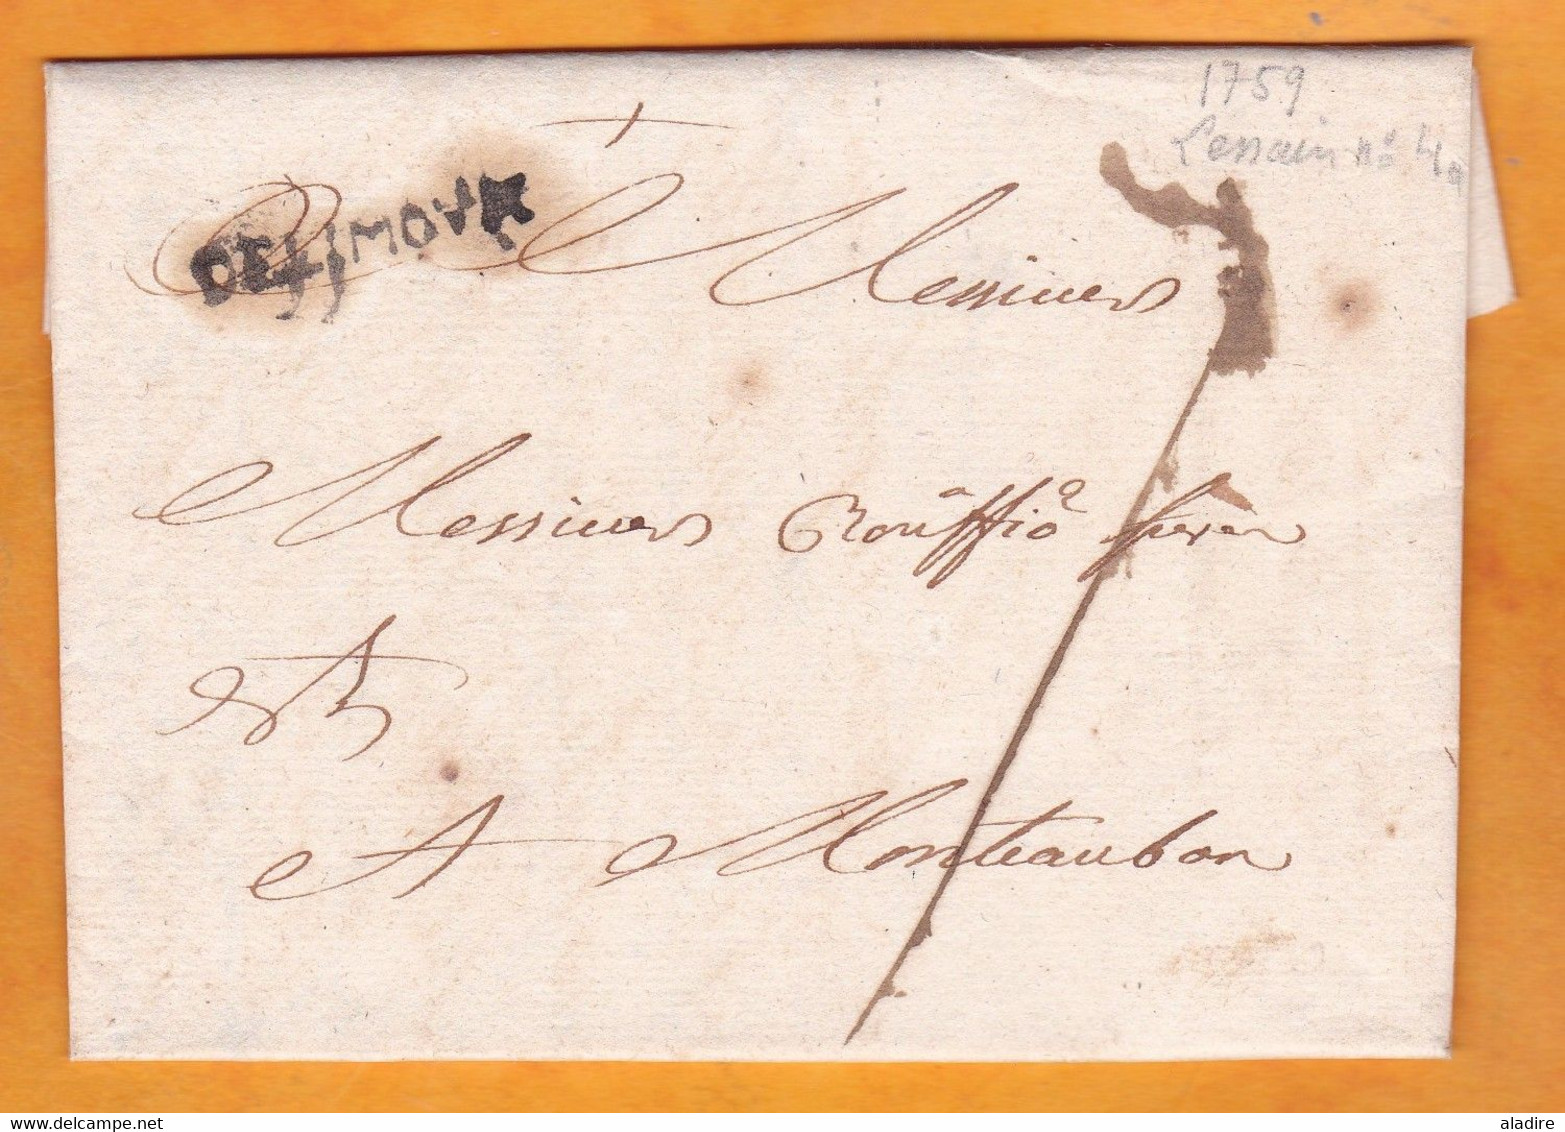 1759
Lenain no 4a
DELIMOUX
A Messieurs
Messieurs Rouffio freres
A Monteauban
www.delcampe.net
aladire